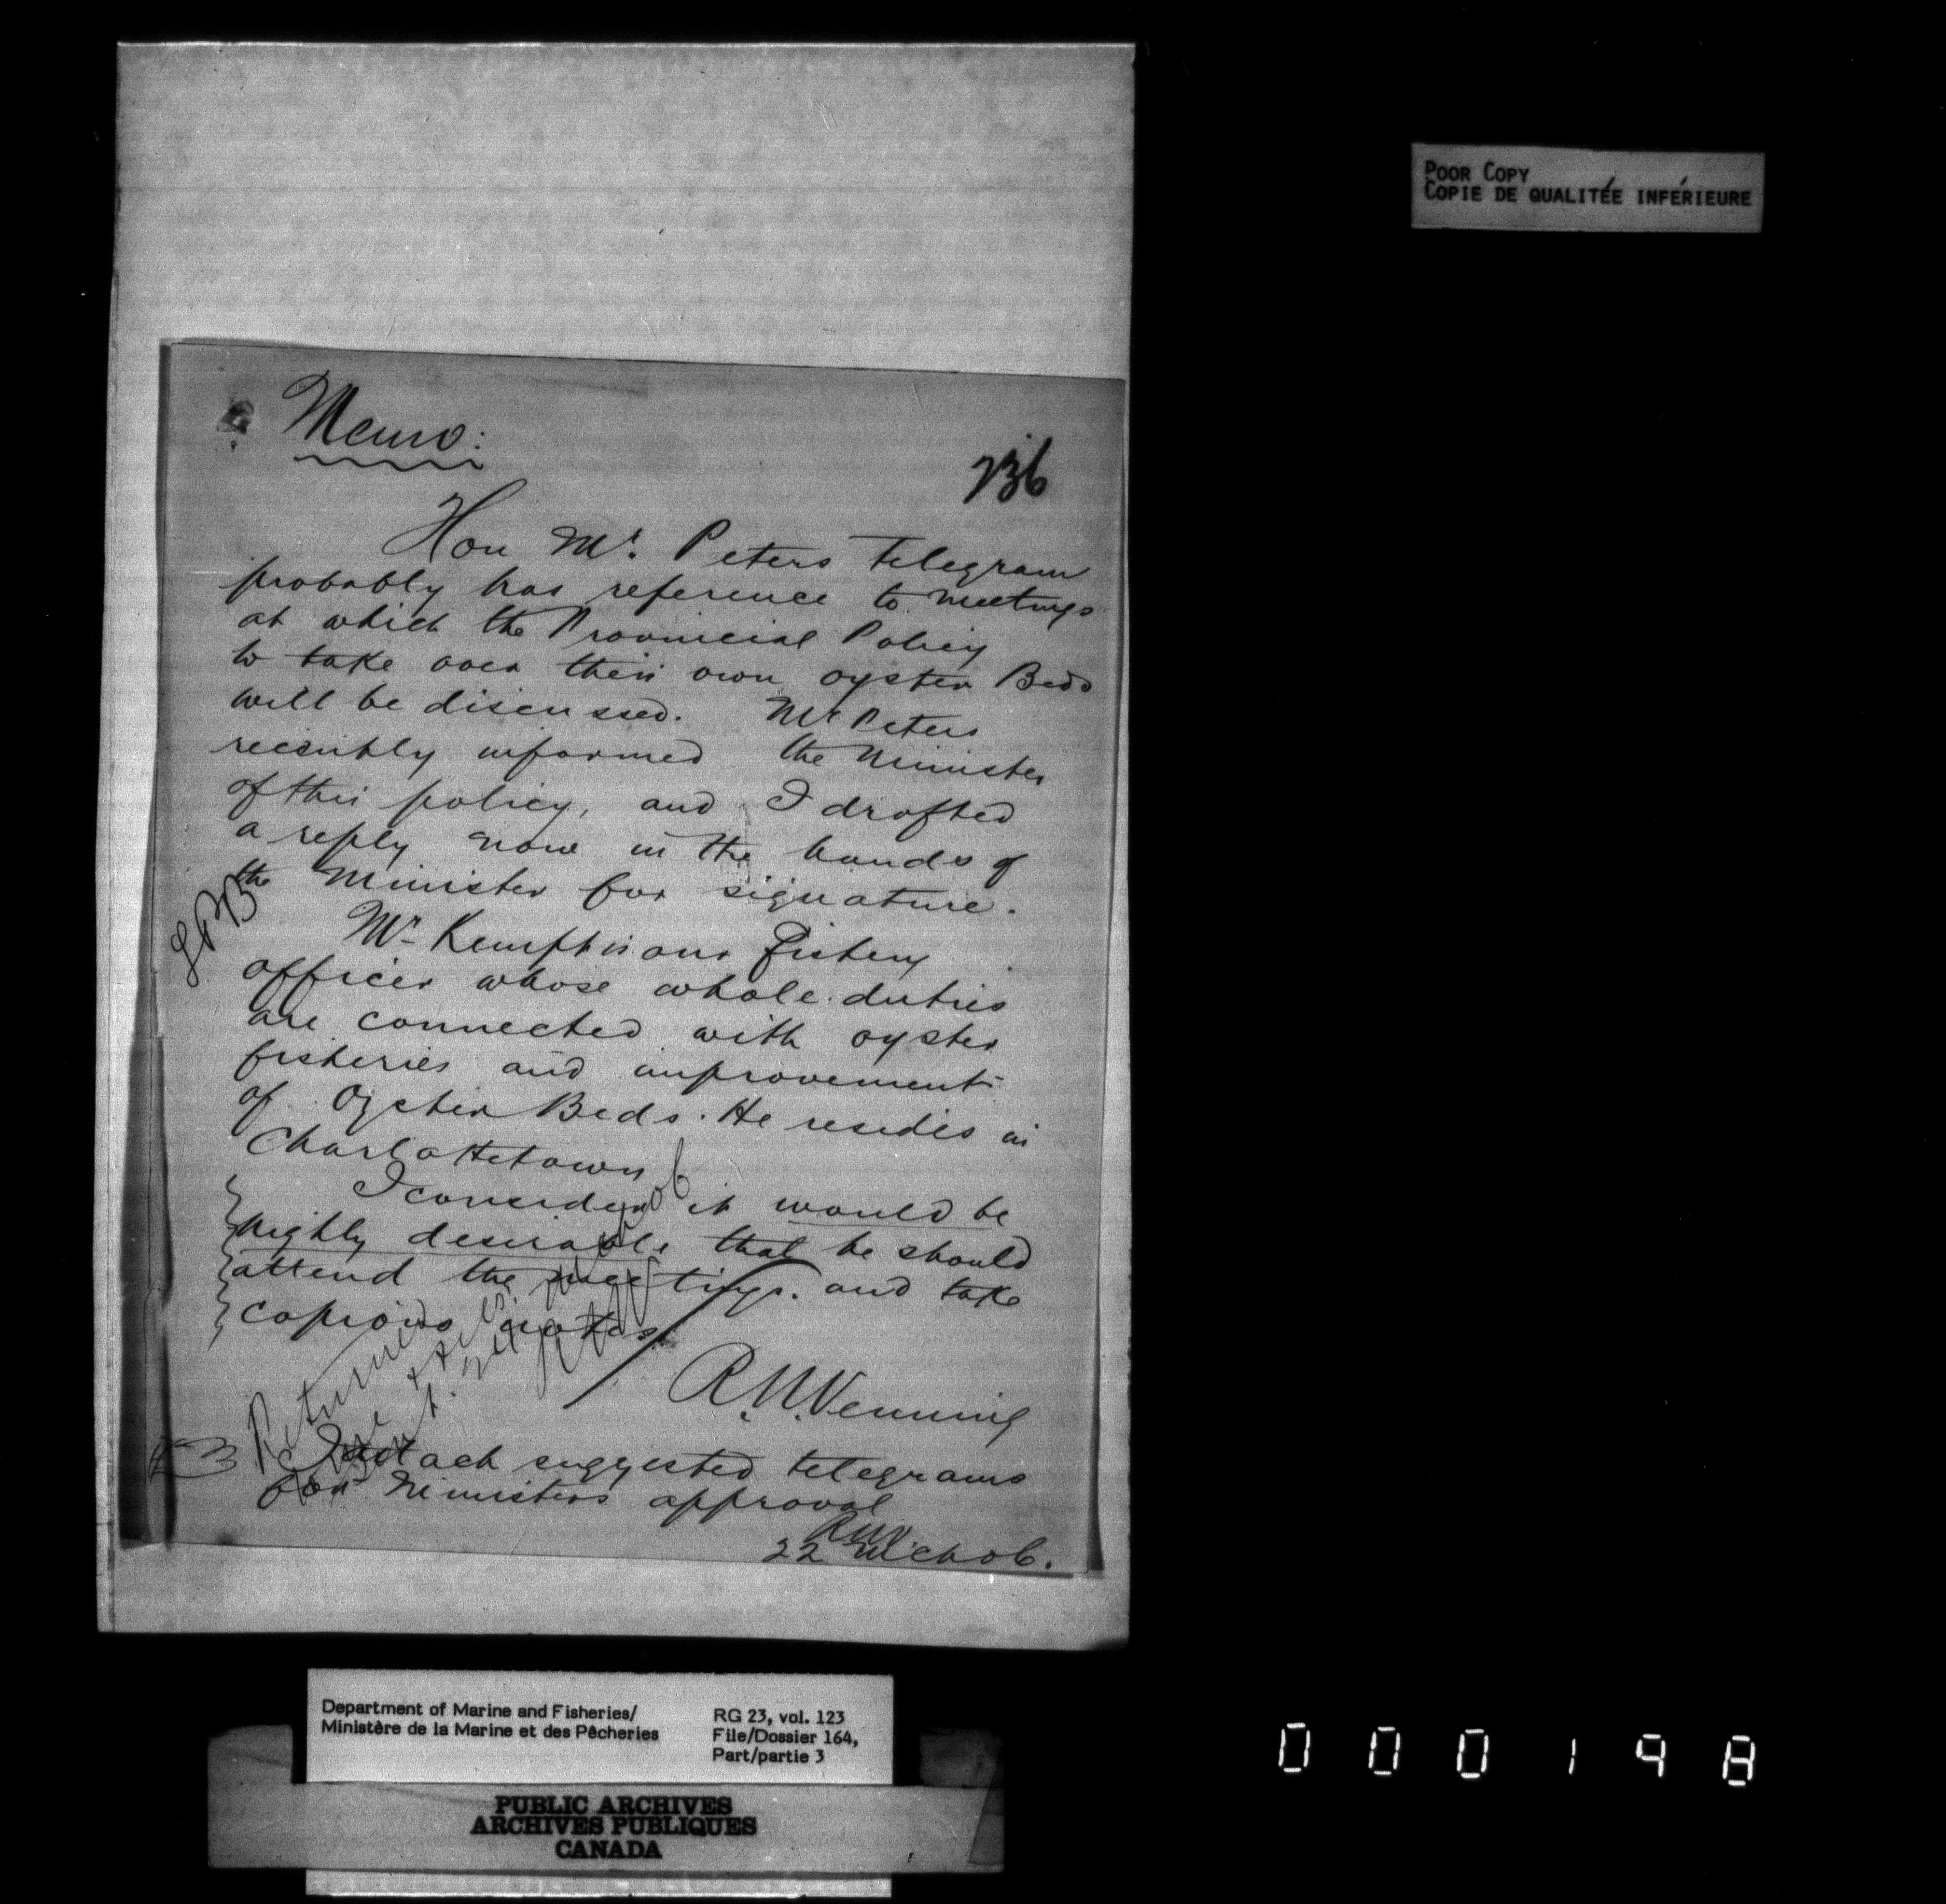 POOR COPY
COPIE DE QUALITÉE INFÉRIEURE
Memo:
736
Hon Mr. Peters Telegram
probably has reference to meetings
at which the Provincial Policy
to take over their own oyster Beds
will be discussed. Mr Peters
recently informed the Minister
of this policy, and I drafted
a reply now in the hands of
the Minister for signature.
Mr Kemp is our Fishery
officer whose whole duties
are connected with oyster
fisheries and improvement
of Oyster Beds. He resides in
Charlottetown
I consider it would be
highly desirable that he should
attend the meetings and take
copious notes
R.N. Venning
Returned
I attach suggested telegrams
for Ministers approval
RNV
22 Mch 06.
Department of Marine and Fisheries/
Ministère de la Marine et des Pêcheries
RG 23, vol. 123
File/Dossier 164,
Part/partie 3
PUBLIC ARCHIVES
ARCHIVES PUBLIQUES
CANADA
000198